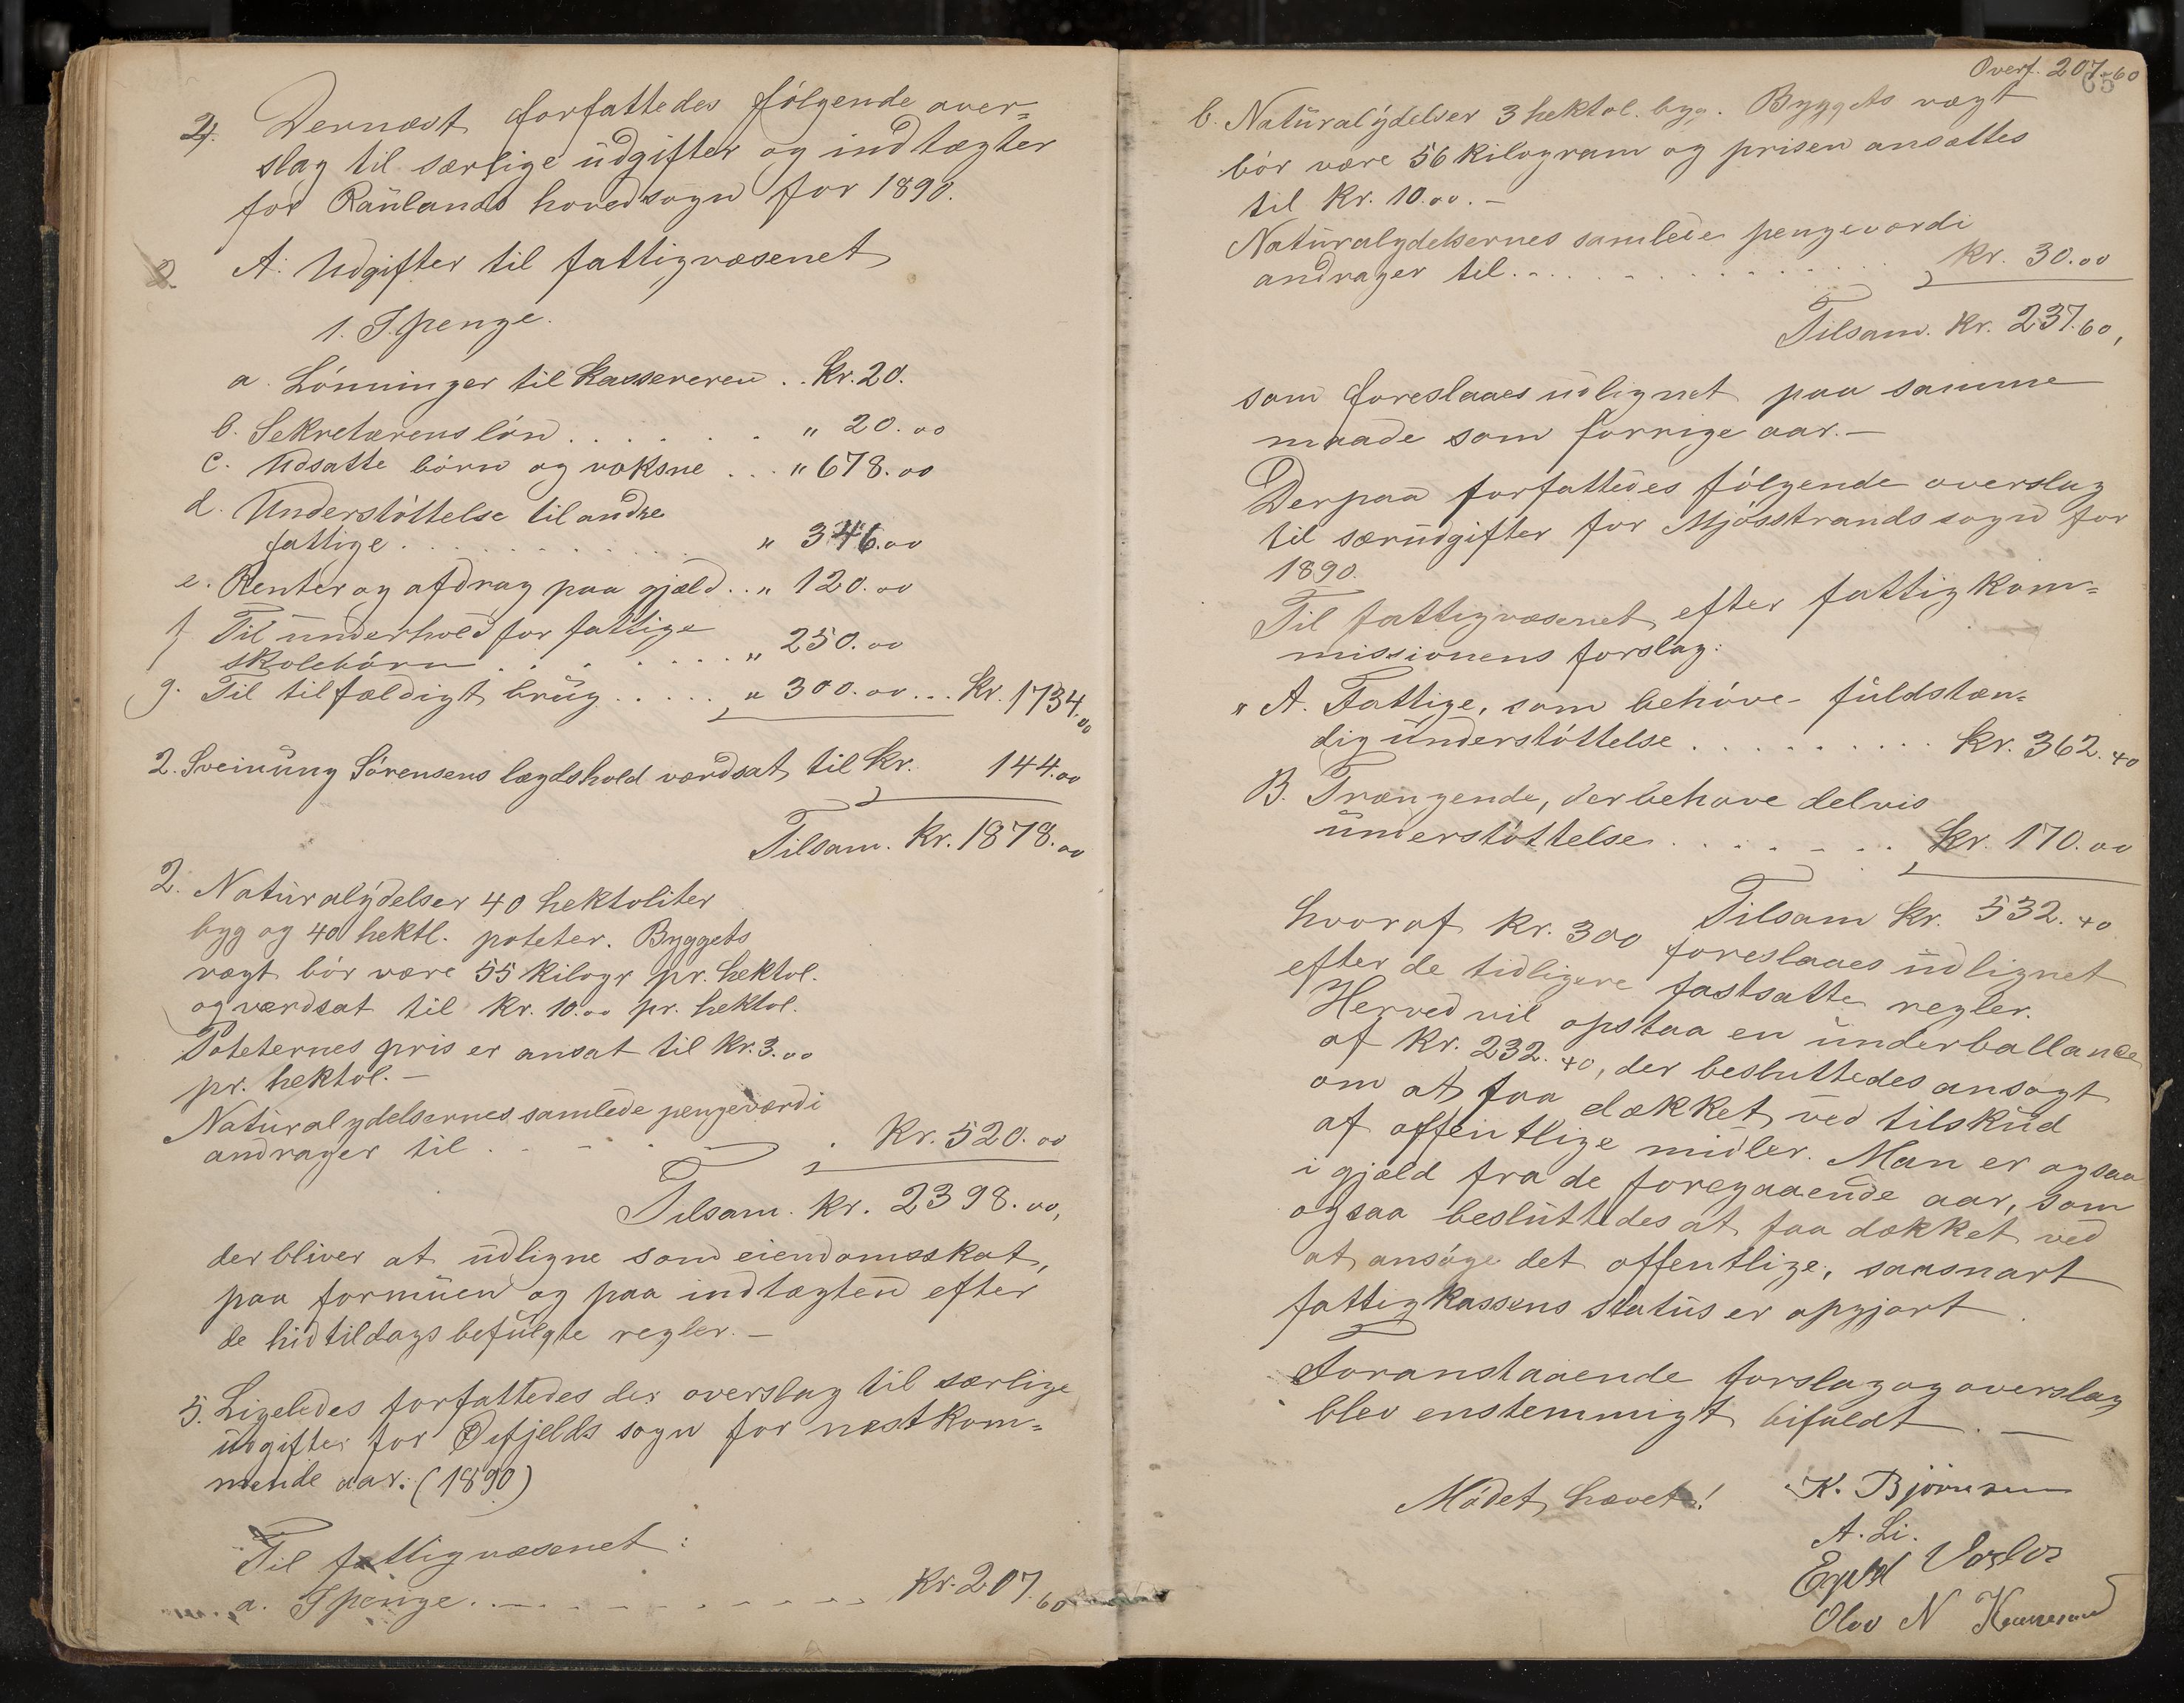 4. Dernæst forfattedes følgende over=
slag til særlige udgifter og indtægter
for Raulands hovedsogn for 1890.
A: Udgifter til fattigvæsenet
1. I penge.
a. Lønninger til kassereren . . Kr. 20.
b. Sekretærens løn . . . . . . . " 20.00
c. Udsatte børn og voksne . . . " 678.00
d. Understøttelse til andre
fattige . . . . . . . . . . . . " 346.00
e. Renter og afdrag paa gjæld . . " 120.00
f. Til underhold for fattige
skolebørn . . . . . . . . . " 250.00
g. Til tilfældigt brug . . . . . " 300.00 . . . Kr. 1734.00
2. Sveinung Sørensens lægdshold værdsat til Kr. 144.00
Tilsam. Kr. 1878.00
2. Naturalydelser 40 hektoliter
byg og 40 hektl. poteter. Byggets
vægt bør være 55 kilogr pr. hektol.
og værdsat til kr. 10.00 pr. hektol.
Poteternes pris er ansat til kr. 3.00
pr. hektol. —
Naturalydelsernes samlede pengeværdi
andrager til . . . . . Kr. 520.00
Tilsam. kr. 2398.00,
der bliver at udligne som eiendomsskat,
paa formuen og paa indtægten efter
de hidtildags befulgte regler. —
5. Ligeledes forfattedes der overslag til særlige
udgifter for Øifjelds sogn for næstkom=
mende aar: (1890)
Til fattigvæsenet:
a. I penge. . . . . . . . . . . Kr. 207.60
Overf. 207.60
65
b. Naturalydelser 3 hektol. byg. Byggets vægt
bør være 56 kilogram og prisen ansættes
til Kr. 10.00. —
Naturalydelsernes samlede pengeværdi
andrager til . . . . . . . . . . . . Kr. 30.00
Tilsam. Kr. 237.60,
som foreslaaes udlignet paa samme
maade som forrige aar. —
Derpaa forfattedes følgende overslag
til særudgifter for Mjøsstrands sogn for
1890.
Til fattigvæsenet efter fattigkom=
missionens forslag:
" A. Fattige, som behøve fuldstæn=
dig understøttelse . . . . . . . . . . Kr. 362.40
B. Trængende, der behøve delvis
understøttelse . . . . . . . Kr. 170.00
Tilsam Kr. 532.40
hvoraf Kr. 300 foreslaaes udlignet
efter de tidligere fastsatte regler.
Herved vil opstaa en underballance
af Kr. 232.40, der besluttedes ansøgt
om at faa dækket ved tilskud
af offentlige midler. Man er ogsaa
i gjæld fra de foregaaende aar, som
ogsaa besluttedes at faa dækket ved
at ansøge det offentlige, saasnart
fattigkassens status er opgjort.
Foranstaaende forslag og overslag
blev enstemmigt bifaldt. —
Mødet hævet!
K. Bjørnsen
A. Li.
Olav N